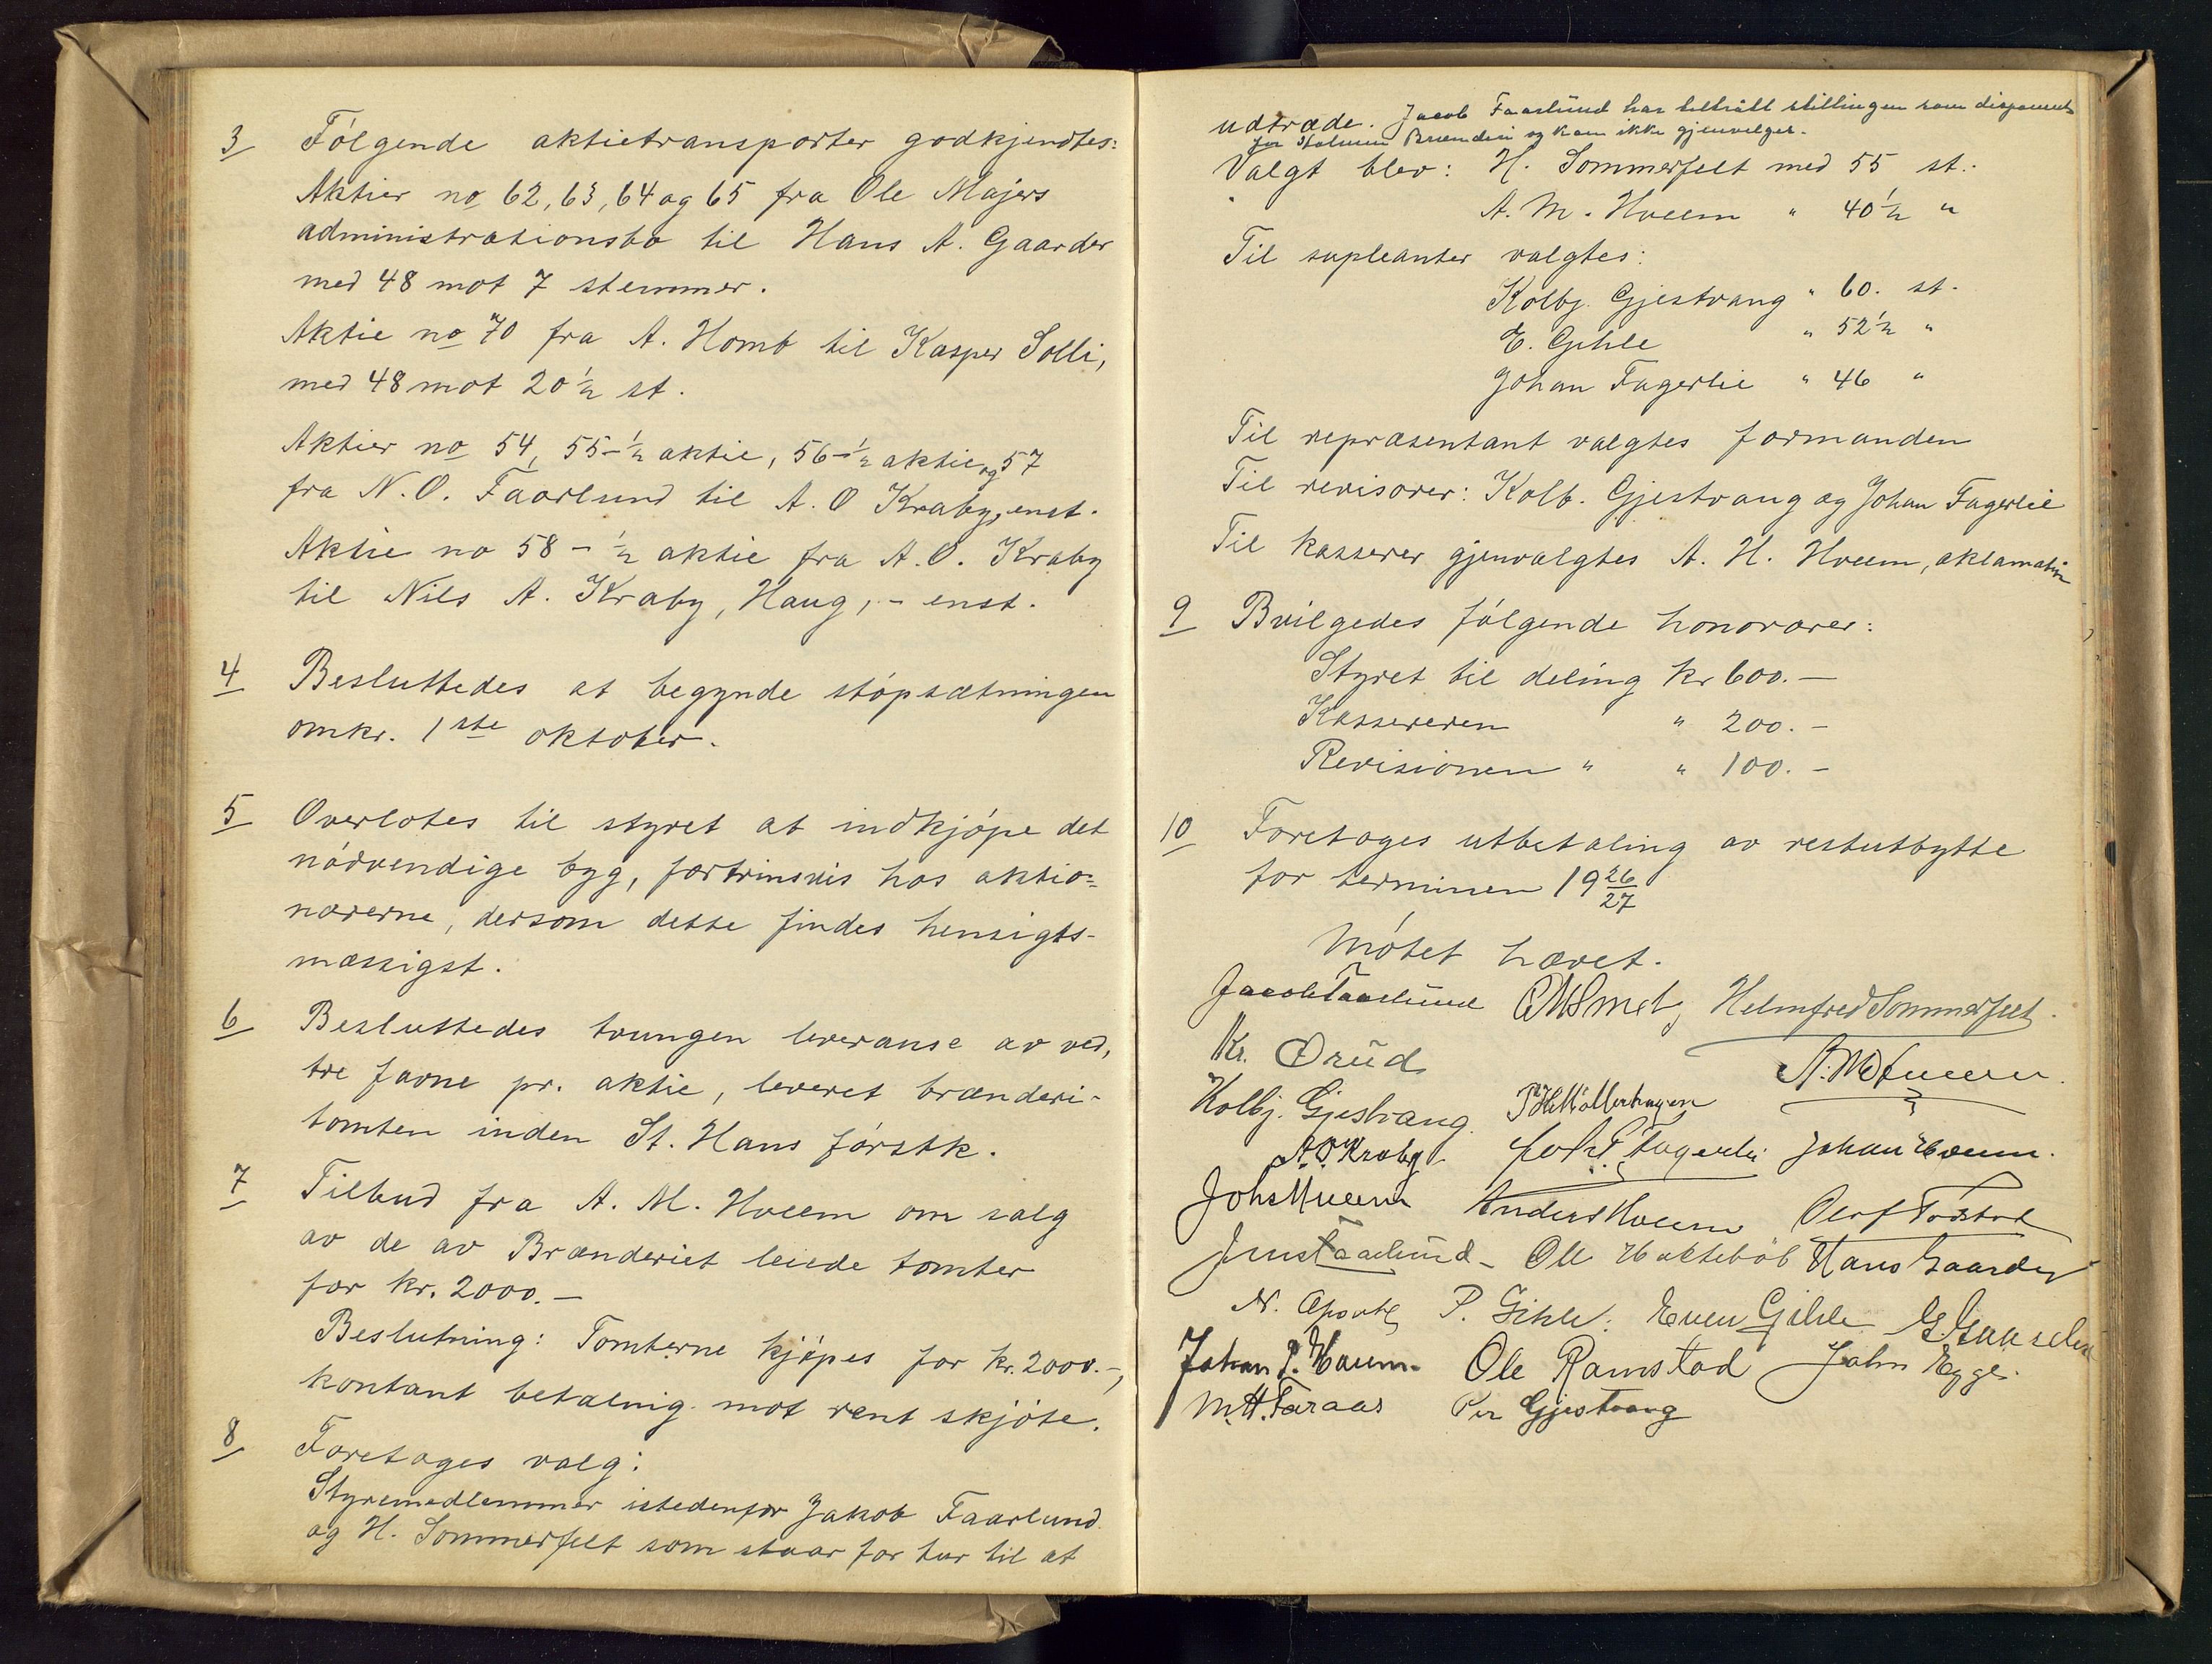 3 Følgende aktietransporter godkjendtes:
Aktier no 62, 63, 64 og 65 fra Ole Majers
administrationsbo til Hans A. Gaarder
med 48 mot 7 stemmer.
Aktie no 70 fra A. Homb til Kasper Solli,
med 48 mot 20 1/2 st.
Aktier no 54, 55 - 1/2 aktie, 56 - 1/2 aktie og 57
fra N. O. Faarlund til A. O Kraby, enst.
Aktie no 58 - 1/2 aktie fra A. O. Kraby
til Nils A. Kraby, Haug, - enst.
4 Besluttedes at begynde støpsætningen
omkr. 1ste oktober.
5 Overlotes til styret at indkjøpe det
nødvendige byg, fortrinsvis hos aktio=
nærerne, dersom dette findes hensigts-
mæssigst.
6 Besluttedes tvungen leveranse av ved,
tre favne pr. aktie, leveret brænderi-
tomten inden St. Hans førstk.
7 Tilbud fra A. M. Hveem om salg
av de av Brænderiet leiede tomter
for kr. 2000.-
Beslutning: Tomterne kjøpes for kr. 2000.-,
kontant betalnig mot rent skjøte.
8 Foretoges valg:
Styremedlemmer istedenfor Jakob Faarlund
og H. Sommerfelt som staar for tur til at
udtræde. Jacob Faarlund har tiltraadt stillingen som disponent
for Brænderi og kan ikke gjenvelges.
Valgt blev: H. Sommerfelt med 55 st.
A. M. Hveem " 40 1/2 "
Til supleanter valgtes:
Kolbj. Gjestvang " 60. st.
E. Gihle " 52 1/2 "
Johan Fagerlie " 46 "
Til repræsentant valgtes formanden
Til revisorer: Kolb. Gjestvang og Johan Fagerlie
Til kasserer gjenvalgtes A. H. Hveem, aklamation
9 Bvilgedes følgende honorarer:
Styret til deling kr 600.-
Kassereren " 200.-
Revisionen " " 100.-
10 Foretoges utbetaling av restutbytte
for terminen 19 26/27
Møtet hævet.
Jacob Faarlund Helmfred Sommerfelt.
Kr. Ørud A. M Hveem.
Kolbj. Gjestvang. P H Møllerhagen
A. O. Kraby Joh. P. Fagerli Johan Hveem.
Johs Hveem Anders Hveem Oluf
Jens Faarlund - Ole Hans Gaarder
N. P. Gihle. Even Gihle
Johan P. Hveem. Ole Ramstad John Egge.
M. H. Faraas Per Gjestvang